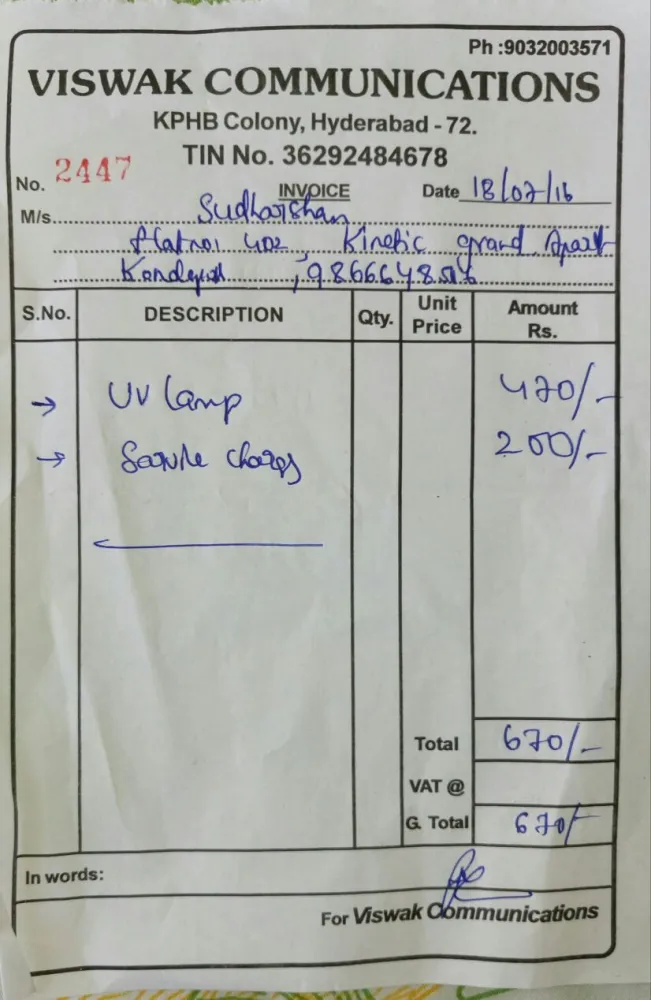 Ph :9032003571
VISWAK COMMUNICATIONS
KPHB Colony, Hyderabad - 72.
TIN No. 36292484678
No. 2447
INVOICE
Date 18/07/16
M/s. Sudharshan
flat no: 402, Kinetic grand, Apart
S.No. DESCRIPTION Qty. Unit Price Amount Rs.
→ UV lamp 470/-
→ Servile charges 200/-
Total 670/-
VAT @
G. Total 670/-
In words:
For Viswak Communications